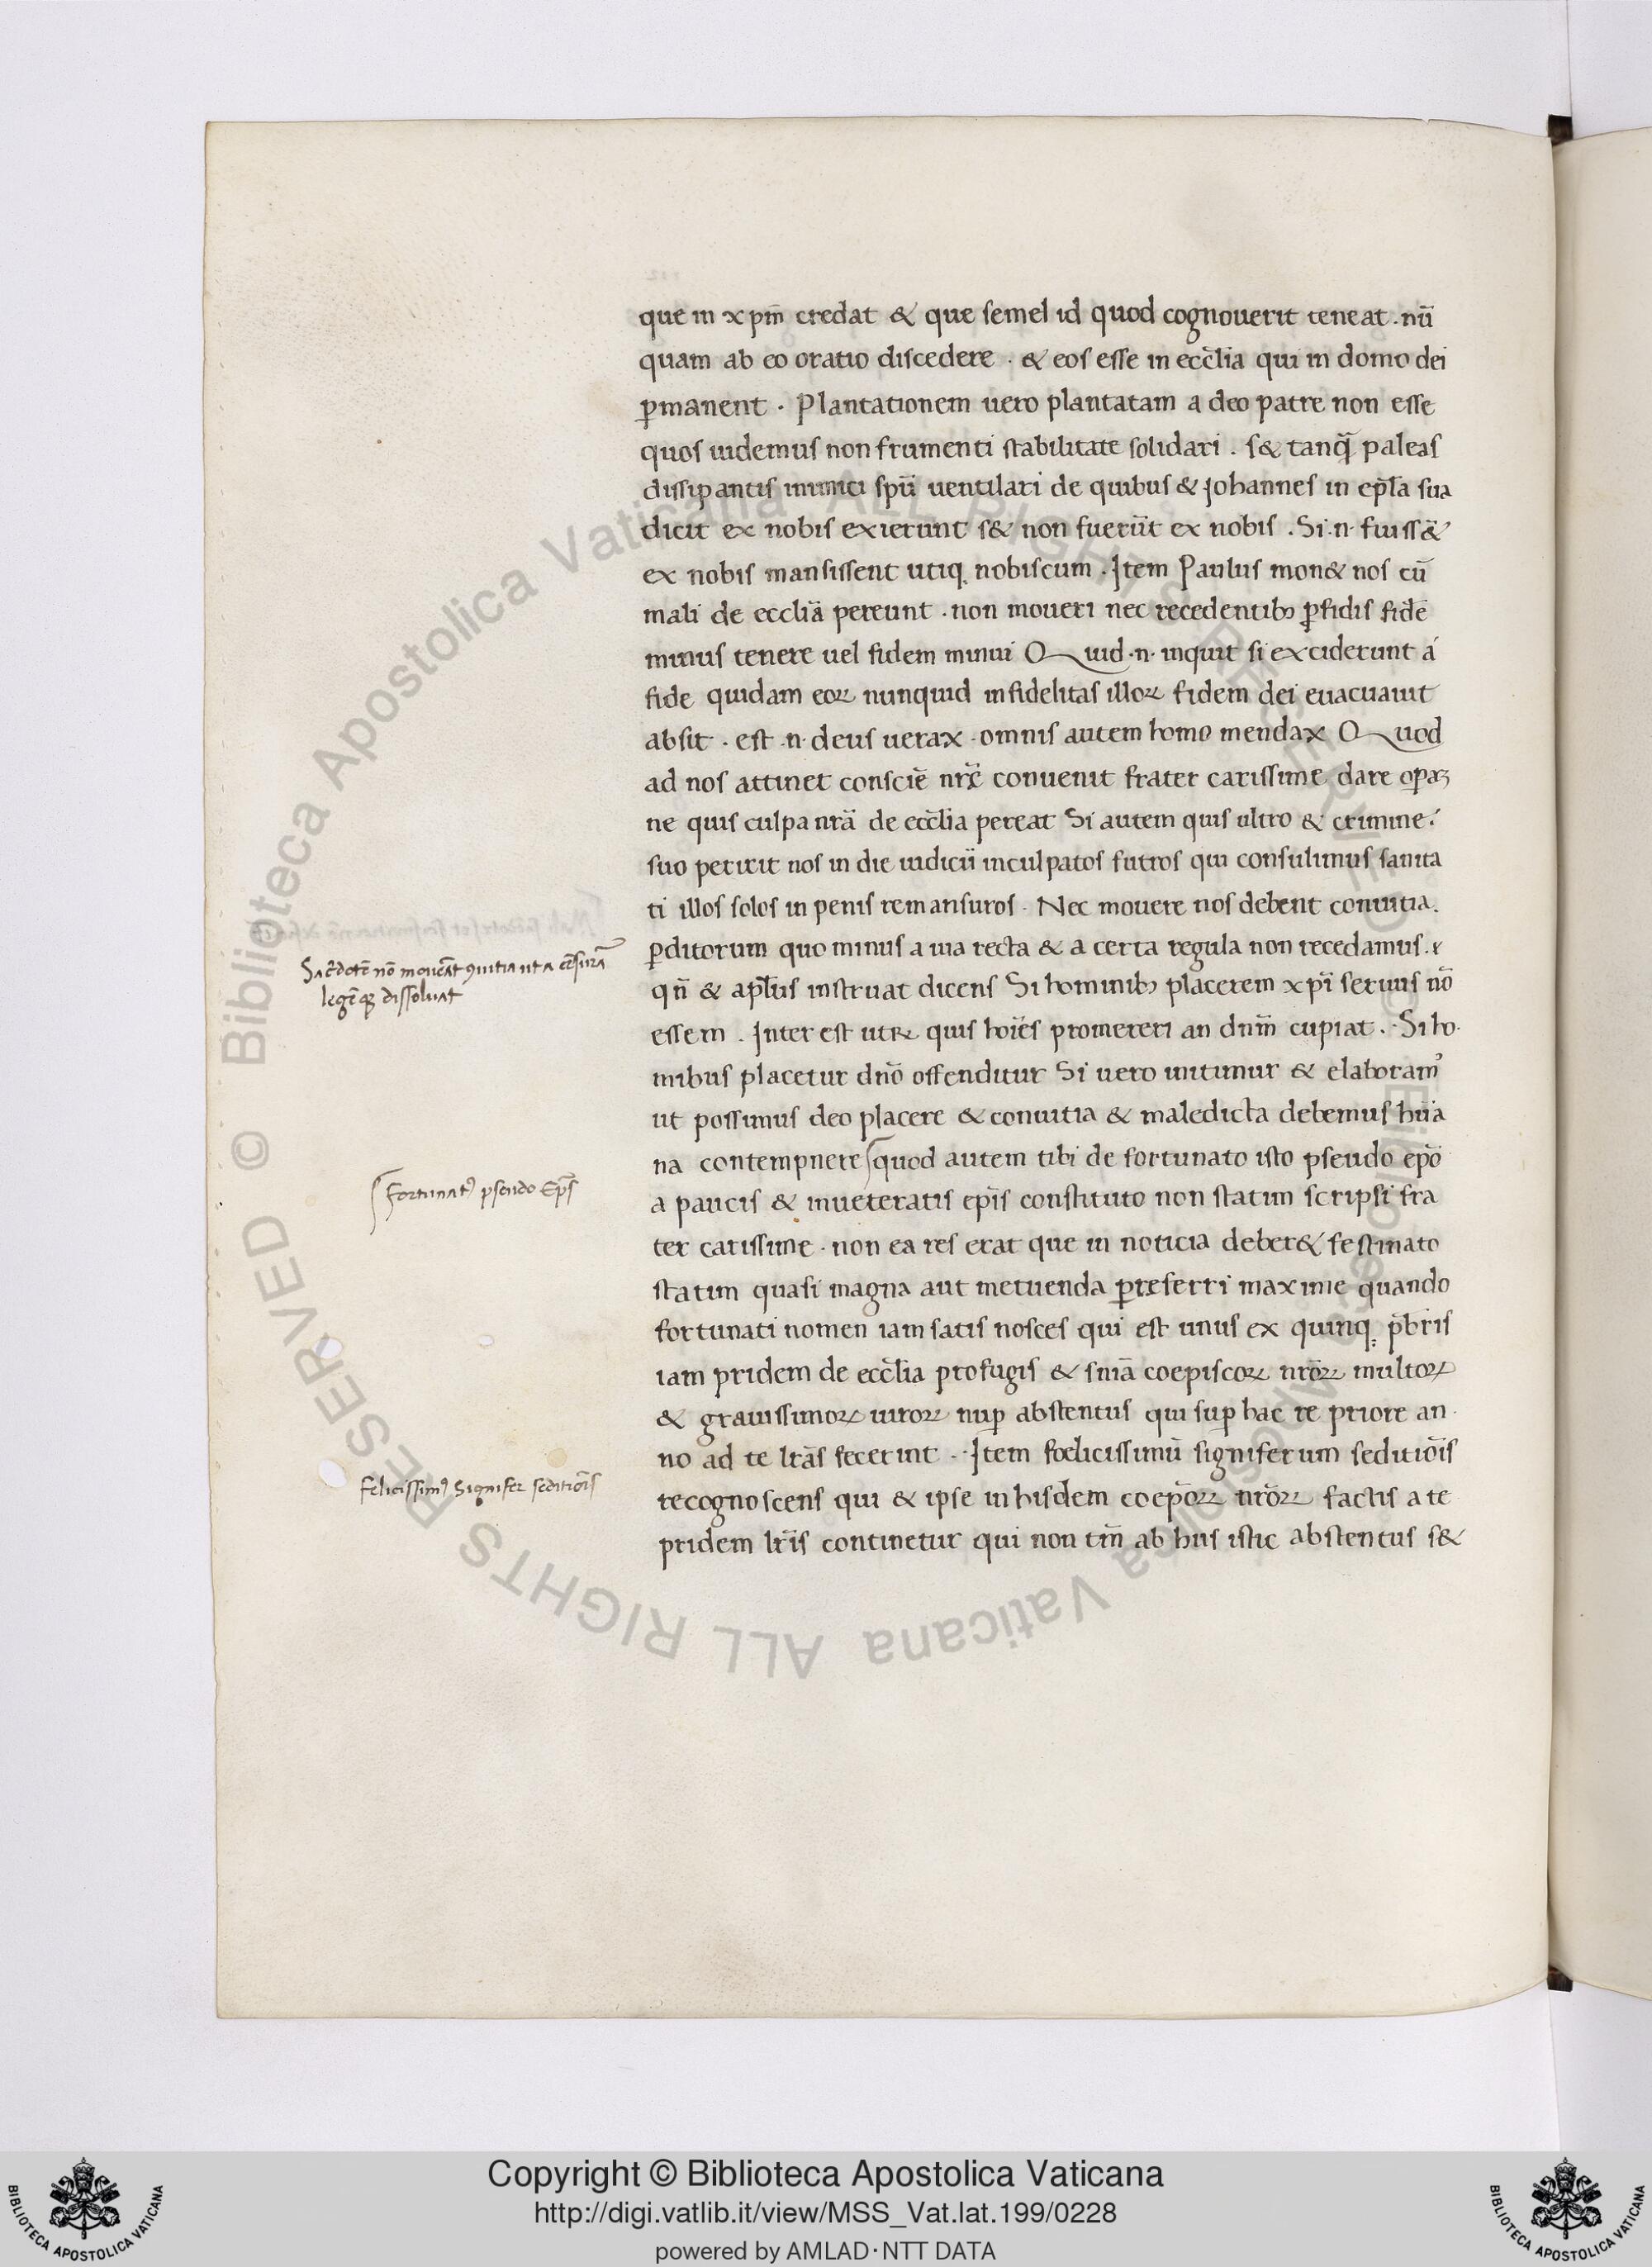 que in xpm̄ credat & que semel id quod cognouerit teneat . nū
quam ab eo oratio discedere . & eos esse in eccl̄ia qui in domo dei
ꝑmanent . Plantationem uero plantatam a deo patre non esse
quos uidemus non frumenti stabilitate solidari . s& tanq̄ paleas
dissipantis inimici spū uentilari de quibus & Johannes in epl̄a sua
dicit ex nobis exierunt s& non fuerūt ex nobis . Si .n. fuiss&̄
ex nobis mansissent utiq. nobiscum . Item Paulus mon& nos cū
mali de eccliā pereunt . non moueri nec recedentibꝫ ꝑfidis fidē
minus tenere uel fidem minui Quid .n. inquit si exciderunt á
fide quidam eoꝝ nunquid infidelitas illoꝝ fidem dei euacuauit
absit . est .n. deus uerax . omnis autem homo mendax Quod
ad nos attinet consciē nr̄e conuenit frater carissime dare opaꝫ
ne quis culpa nrā de eccl̄ia pereat Si autem quis ultro & crimine
suo perierit nos in die iudicii inculpatos futros qui consulimus sanita
ti illos solos in penis remansuros . Nec mouere nos debent conuitia .
ꝑditorum quo minus a uia recta & a certa regula non recedamus .
qn̄ & apl̄us instruat dicens Si hominibꝫ placerem xpī seruus nō
essem . Inter est utꝝ quis hoīes promereri an dnm̄ cupiat . Si ho
minibus placetur dnō offenditur Si uero uitimur & elaboramꝰ
ut possimus deo placere & conuitia & maledicta debemus hūa
na contempnere quod autem tibi de fortunato isto pseudo epō
a paucis & inueteratis epīs constituto non statim scripsi fra
ter carissime . non ea res erat que in noticia deber& festinato
statim quasi magna aut metuenda preferri maxime quando
fortunati nomen iam satis nosces qui est unus ex quinq; pb̄ris
iam pridem de eccl̄ia profugis & sniā coepiscoꝝ nr̄oꝝ multoꝝ
& grauissimoꝝ uiroꝝ nuꝑ abstentus qui suꝑ hac re priore an
no ad te lrās fecerint . Item foelicissimū signiferum seditiōis
recognoscens qui & ipse in hisdem coepōꝝ nrōꝝ factis a te
pridem lr̄is continetur qui non tm̄ ab hiis istic abstentus s&
Sac̄dotē nō moueāt ꝯuitia ut a cēsura
legēqꝫ dissoluāt
Fortunatꝰ pseudo Ep̄s
Felicissimꝰ Signifer seditiōis
Copyright © Biblioteca Apostolica Vaticana
http://digi.vatlib.it/view/MSS_Vat.lat.199/0228
powered by AMLAD·NTT DATA
BIBLIOTECA APOSTOLICA VATICANA
BIBLIOTECA APOSTOLICA VATICANA
© Biblioteca Apostolica Vaticana ALL RIGHTS RESERVED
© Biblioteca Apostolica Vaticana ALL RIGHTS RESERVED